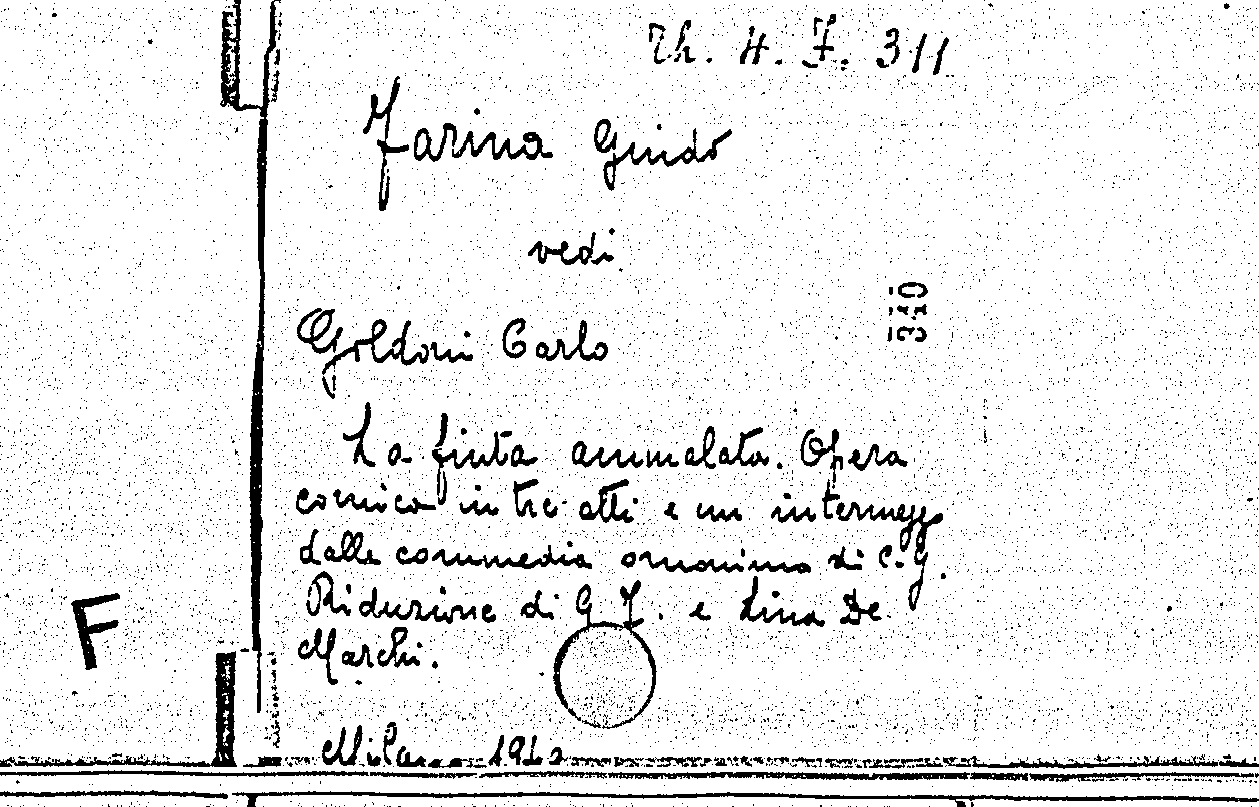 Th. H. F. 311
Farina Guido
vedi
340
Goldoni Carlo
La finta ammalata. Opera
comica in tre atti e un intermezzo
dalle commedia omonima di C. G.
Riduzione di G. F. e Lina De
Marchi.
F
Milano